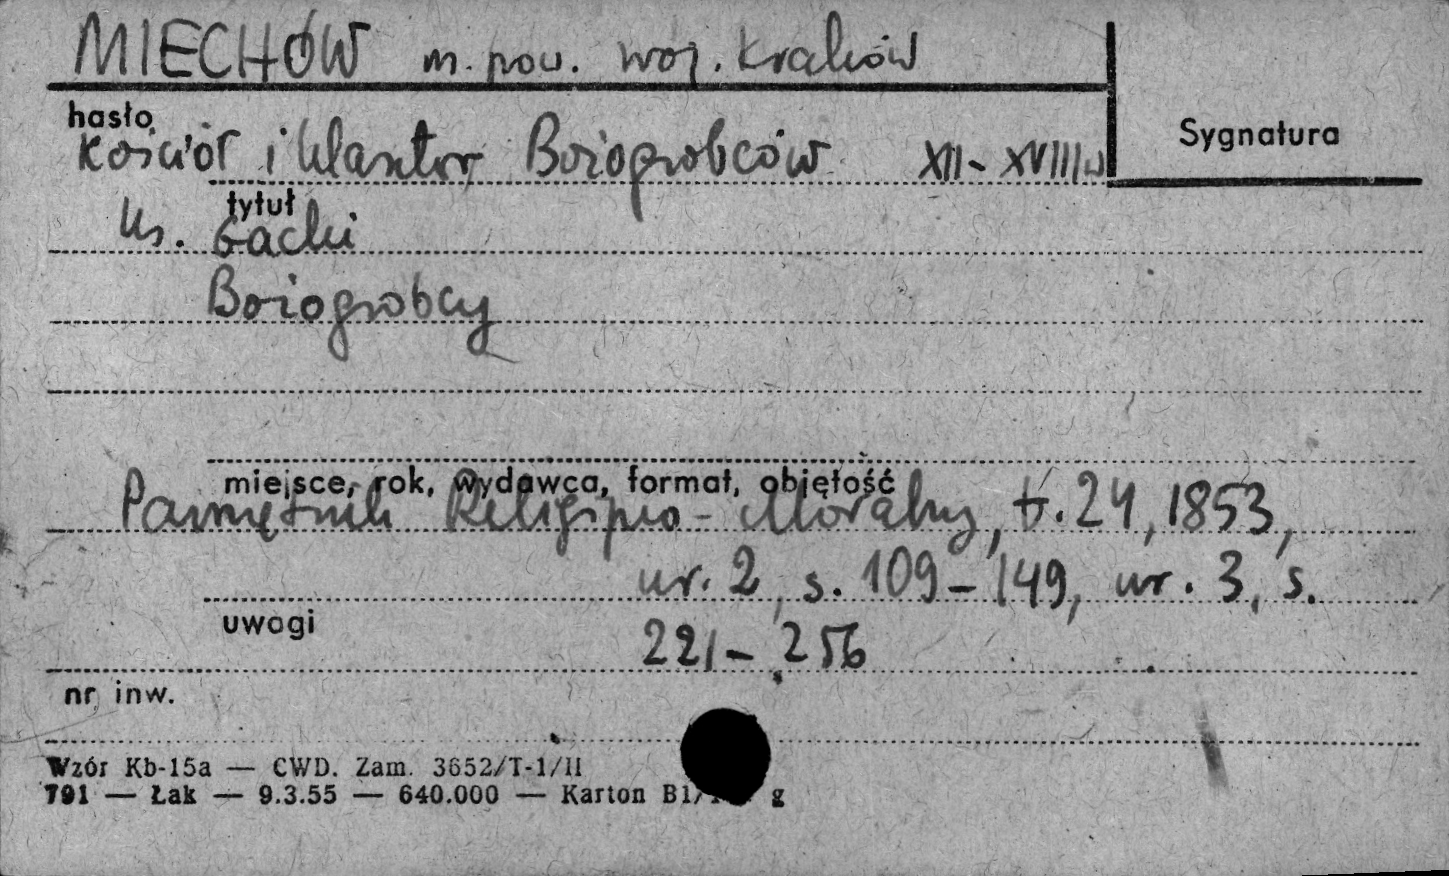 MIECHÓW m. pow. woj. Kraków
hasło
Sygnatura
Kościół i klasztor Bożogrobców XII - XVIII w
tytuł
ks. Gacki
Bożogrobcy
miejsce, rok, wydawca, format, objętość
Pamiętnik Religijno - Moralny, t. 24, 1853,
nr. 2, s. 109 - 149, nr. 3, s.
uwagi
221 - 256
nr inw.
Wzór Kb-15a — CWD. Zam. 3652/T-1/II
791 — Łak — 9.3.55 — 640.000 — Karton B1/ g